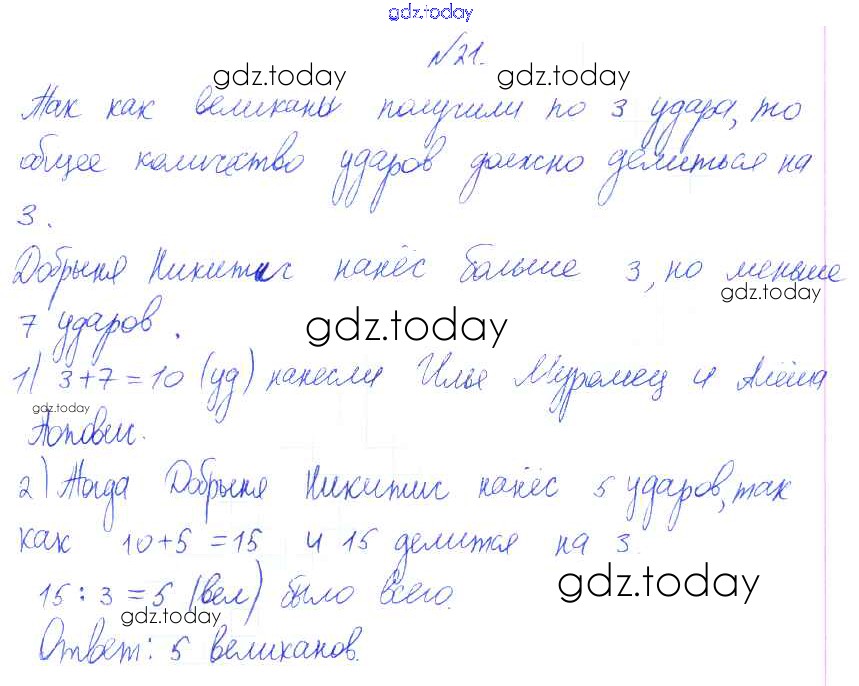 gdz.today
№21.
gdz.today gdz.today
Так как великаны получили по 3 удара, то
общее количество ударов должно делиться на
3.
Добрыня Никитич нанёс больше 3, но меньше
gdz.today
7 ударов.
gdz.today
1) 3+7=10 (уд) нанесли Илья Муромец и Алёша
gdz.today
Попович.
2) Тогда Добрыня Никитич нанёс 5 ударов, так
как 10+5=15 и 15 делится на 3.
gdz.today
15:3=5 (вел) было всего.
gdz.today
Ответ: 5 великанов.